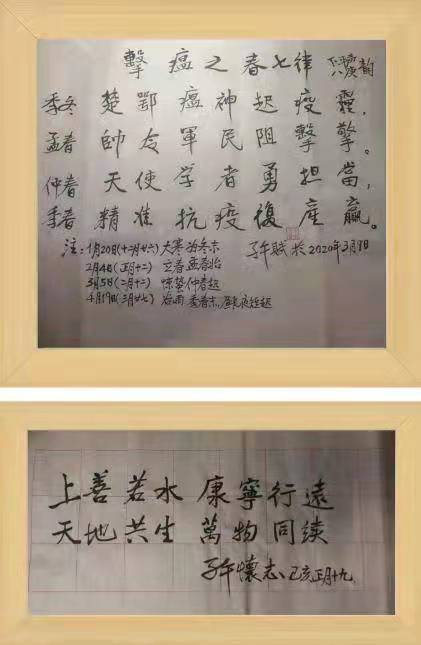 擊瘟之春七律 下平八庚韵
季冬 楚鄂瘟神起疫霾,
孟春 帥 軍民阻擊擎。
仲春 天使学者勇担當,
季春 精准抗疫復産贏。
注:1月20日(十二月廿六) 大寒 冬末 子午赋 2020年3月9日
2月4日(正月十二) 立春 孟春始
3月5日(二月十二) 惊蛰 仲春起
4月19日(三月廿七) 谷雨 季春末
上善若水 康寧行遠
天地共生 萬物同续
子午懷志 己亥正月十九